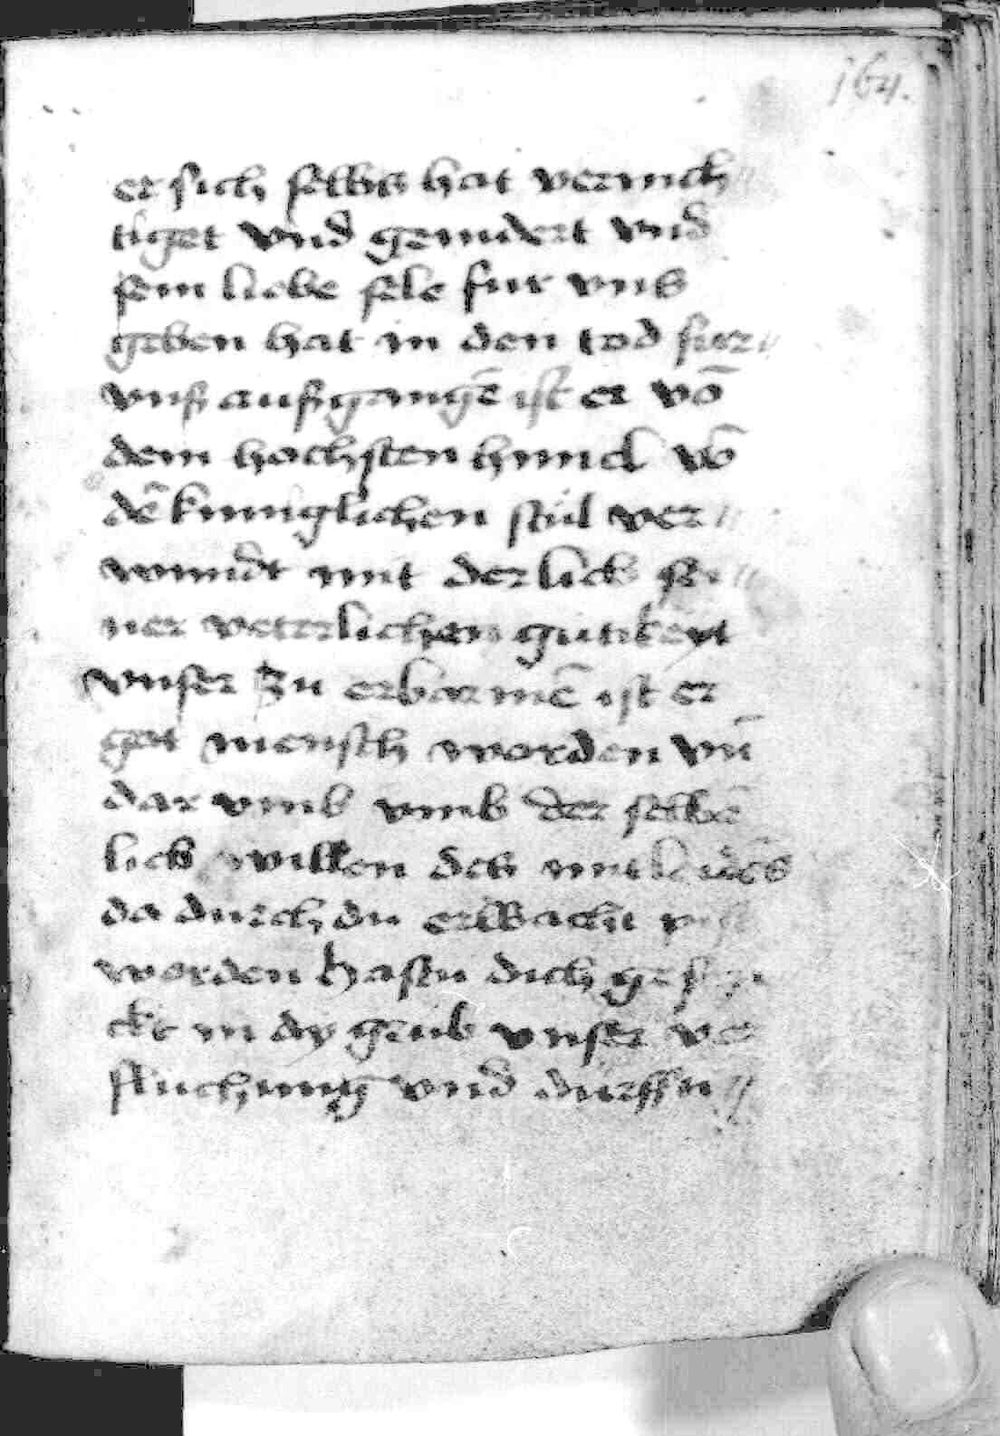 164.
er sich selbs hat vernich
tiget vnd gemidert vnd
sein liebe sele fur vns
geben hat in den tod fur
vnß außgangē ist er vō
dem hochsten himel vō
dē kuniglichen stul ver
wundt mit der lieb sei
ner veterlichen gutikeyt
vnser zu erbarmē ist er
got mensch worden vn̄
dar vmb vmb der selbē
lieb willen des mitleidēs
da durch du
worden hastu dich
in dy grub vnser ver
fluchung vnd